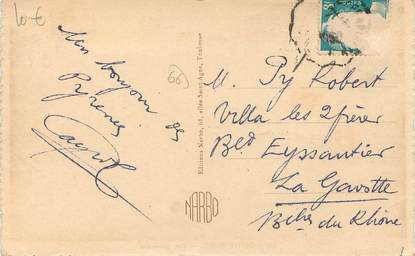 10 €
Un bonjour des
Pyrénées
66
Editions Narbo, 14, allée Saint-Agne, Toulouse
NARBO
M. Py Robert
Villa les 2 frères
Bld Eyssautier
La Gavotte
Bches du Rhône